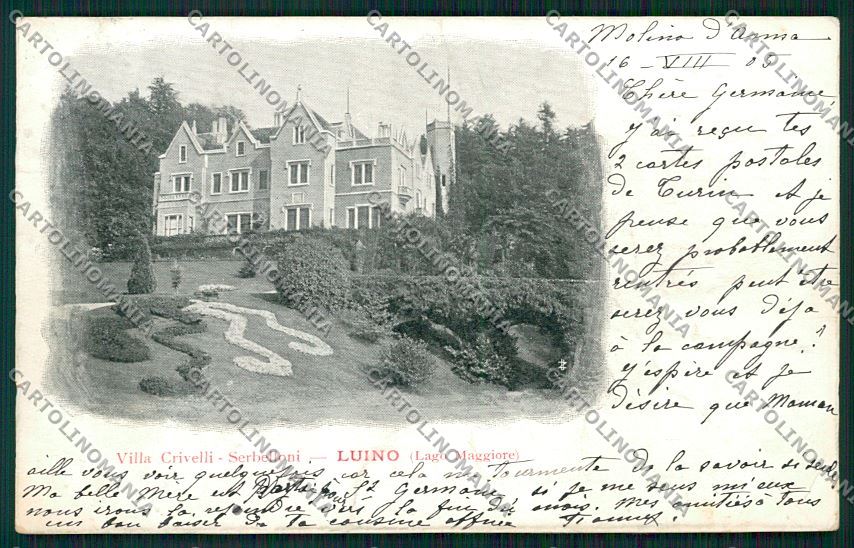 Molino d'Anna
16 - VIII 05
Chère Germaine,
j'ai reçu tes
2 cartes postales
de Turin et je
pense que vous
serez probablement
rentrés peut être
serez vous déjà
à la campagne?
J'espère et je
désire que Maman
Villa Crivelli - Serbelloni — LUINO (Lago Maggiore)
aille vous voir quelquefois car cela me tourmente de la savoir si seule.
Ma belle Mère est partie pour St Germain, si je me sens mieux
nous irons la rejoindre vers la fin du mois. Mes amitiés à tous
un bon baiser de ta cousine affnée
CARTOLINOMANIA